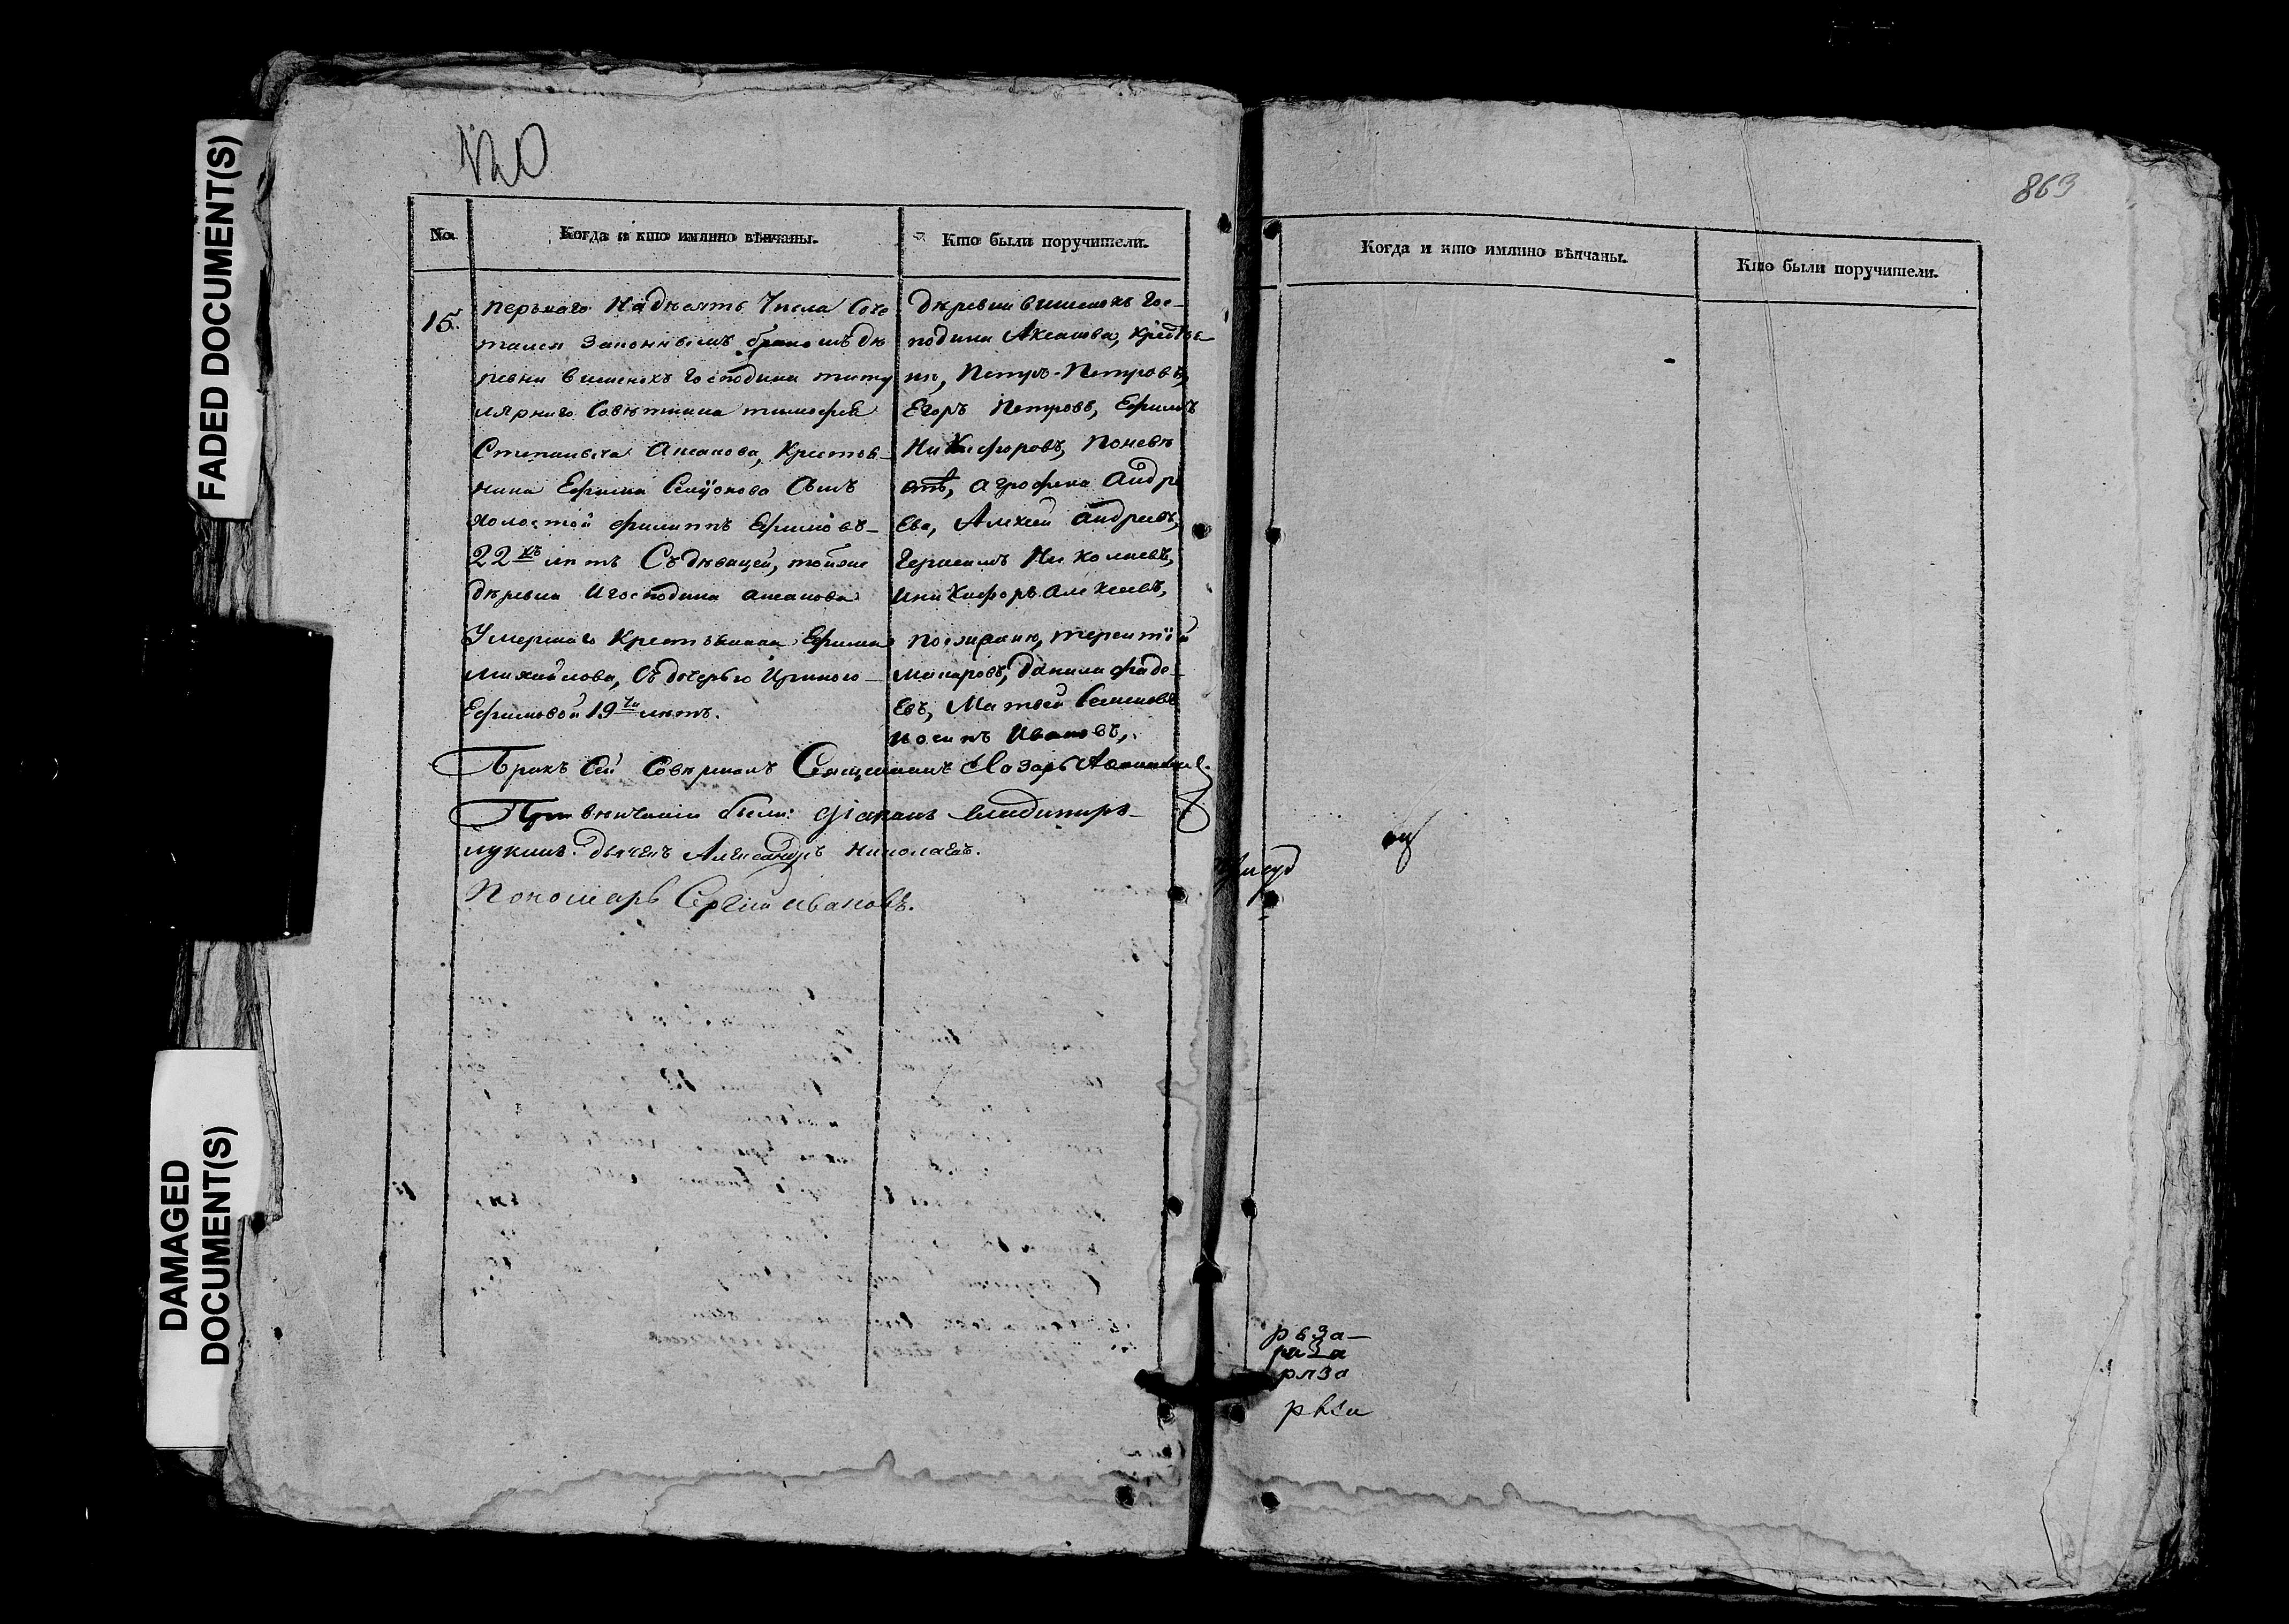 FADED DOCUMENT(S)
DAMAGED
DOCUMENT(S)
863
No.
Когда и кто имянно вѣнчаны.
Кто были поручители.
15.
перьваго Надѣсять Числа Соче
тался Законнымъ бракомъ дѣ
ревни вишенокъ Господина титу
лярнаго Совѣтника тимофея
Степаныча Аксакова, Крестья
нина Ефима Сын
холостой филиппъ Ефимовъ
22хъ лѣтъ Съ дѣвицей, тойже
дѣревни Игосподина аксакова
Умершаго Крестьянина Ефима
михайлова, Съ дочерью Ириною
Ефимовой 19ти лѣтъ.
дѣревни вишенокъ Гос-
подина Аксакова, крестья
не, Петръ Петровъ,
Егоръ Петровъ, Ефимъ
Никифоровъ, Поневѣ
стѣ, агрофена Андре
Ева, Алхѣи андреевъ,
Герасимъ Николаевъ,
Иникифоръ алексеевъ,
терентïй
макаровъ, данила фаде
Евъ, Матвей Семеновъ
иосипъ Ивановъ,
Бракъ Сей Совершалъ Священникъ Лазарь
При вѣнчаніи были: Діаконъ владимиръ
лукинъ. дьячекъ Александръ николаевъ.
Пономарь Сергій ивановъ.
Когда и кто имянно вѣнчаны.
Кто были поручители.